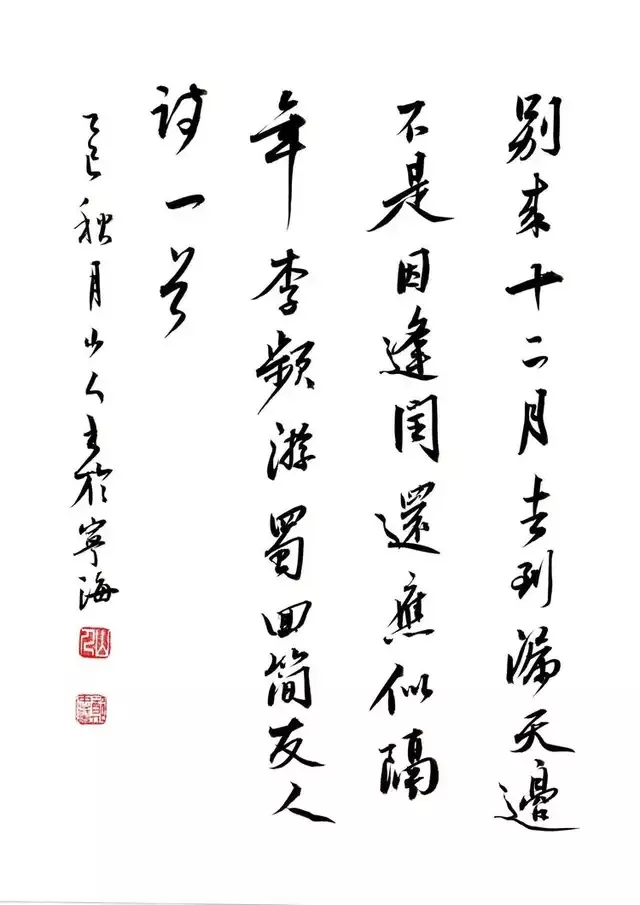 別來十二月去到漏天邊
不是因逢閏還應似隔
年李頻游蜀回簡友人
詩一首
乙巳秋月山人書於寧海
山人